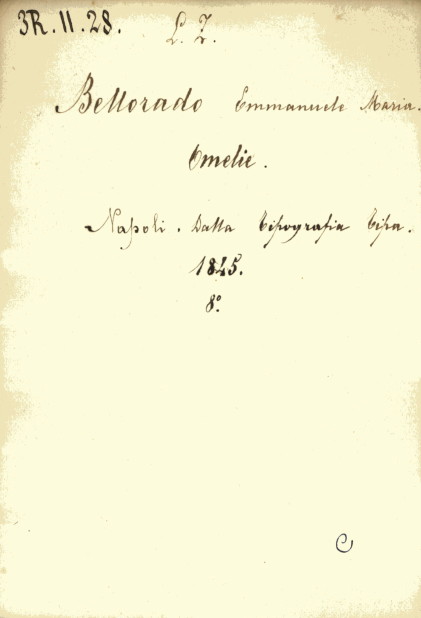 3R.11.28.
L. I.
Bellorado Emmanuele Maria.
Omelie.
Napoli. Dalla Tipografia Tipa.
1845.
8º
C